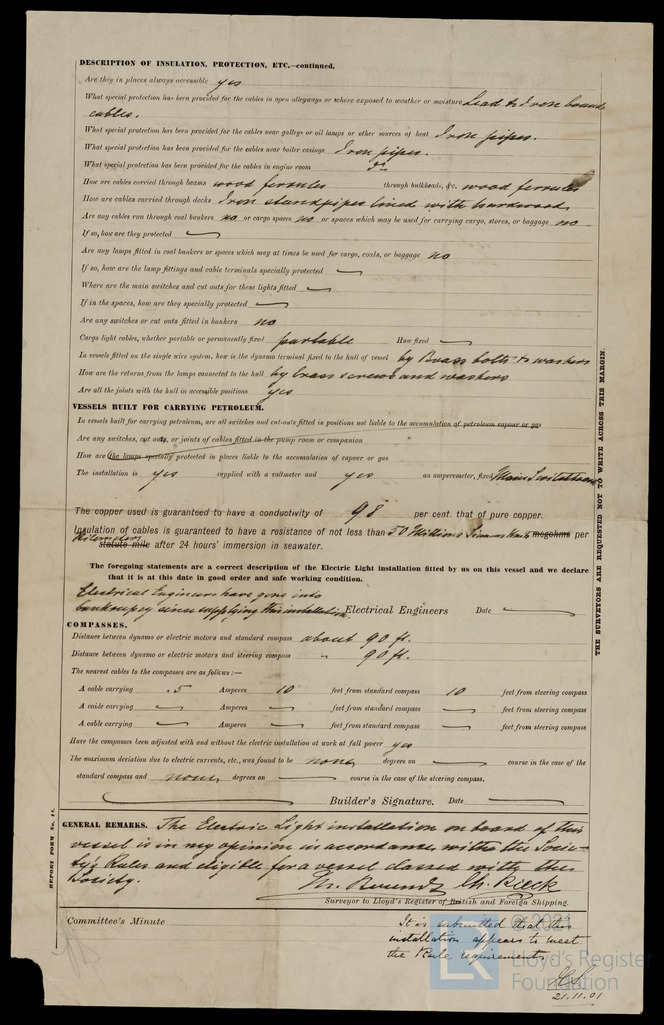 DESCRIPTION OF INSULATION, PROTECTION, ETC.—continued.
Are they in places always accessible yes
What special protection has been provided for the cables in open alleyways or where exposed to weather or moisture Lead & Iron bound
cables.
What special protection has been provided for the cables near galleys or oil lamps or other sources of heat Iron pipes.
What special protection has been provided for the cables near boiler casings Iron pipes.
What special protection has been provided for the cables in engine room Do
How are cables carried through beams wood ferrules through bulkheads, &c. wood ferrules
How are cables carried through decks Iron standpipes lined with hardwood
Are any cables run through coal bunkers no or cargo spaces no or spaces which may be used for carrying cargo, stores, or baggage no
If so, how are they protected —
Are any lamps fitted in coal bunkers or spaces which may at times be used for cargo, coals, or baggage no
If so, how are the lamp fittings and cable terminals specially protected —
Where are the main switches and cut outs for these lights fitted —
If in the spaces, how are they specially protected —
Are any switches or cut outs fitted in bunkers no
Cargo light cables, whether portable or permanently fixed portable How fixed —
In vessels fitted on the single wire system, how is the dynamo terminal fixed to the hull of vessel by Brass bolts & washers
How are the returns from the lamps connected to the hull by brass screws and washers
Are all the joints with the hull in accessible positions yes
VESSELS BUILT FOR CARRYING PETROLEUM.
In vessels built for carrying petroleum, are all switches and cut-outs fitted in positions not liable to the accumulation of petroleum vapour or gas
Are any switches, cut outs, or joints of cables fitted in the pump room or companion
How are the lamps specially protected in places liable to the accumulation of vapour or gas
The installation is yes supplied with a voltmeter and yes an amperemeter, fixed Main Switchboard
The copper used is guaranteed to have a conductivity of 98 per cent. that of pure copper.
Insulation of cables is guaranteed to have a resistance of not less than 50 Millions Siemens Units megohms per
Kilometer statute mile after 24 hours' immersion in seawater.
The foregoing statements are a correct description of the Electric Light installation fitted by us on this vessel and we declare
that it is at this date in good order and safe working condition.
Electrical Engineers have gone into
bankrupcy since supplying this installation. Electrical Engineers Date —
COMPASSES.
Distance between dynamo or electric motors and standard compass about 90 ft.
Distance between dynamo or electric motors and steering compass " 90 ft.
The nearest cables to the compasses are as follows:—
A cable carrying .5 Amperes 10 feet from standard compass 10 feet from steering compass
A cable carrying — Amperes — feet from standard compass — feet from steering compass
A cable carrying — Amperes — feet from standard compass — feet from steering compass
Have the compasses been adjusted with and without the electric installation at work at full power yes
The maximum deviation due to electric currents, etc., was found to be none degrees on — course in the case of the
standard compass and none degrees on — course in the case of the steering compass.
Builder's Signature. Date —
GENERAL REMARKS. The Electric Light installation on board of this
vessel is in my opinion in accordance with the Socie-
ty's Rules and eligible for a vessel classed with this
Society.
Ch. Rieck
Surveyor to Lloyd's Register of British and Foreign Shipping.
Committee's Minute
It is submitted that this
installation appears to meet
the Rule requirements
21.11.01
THE SURVEYORS ARE REQUESTED NOT TO WRITE ACROSS THIS MARGIN.
REPORT FORM No. 17.
© 2021
LR
Lloyd's Register
Foundation